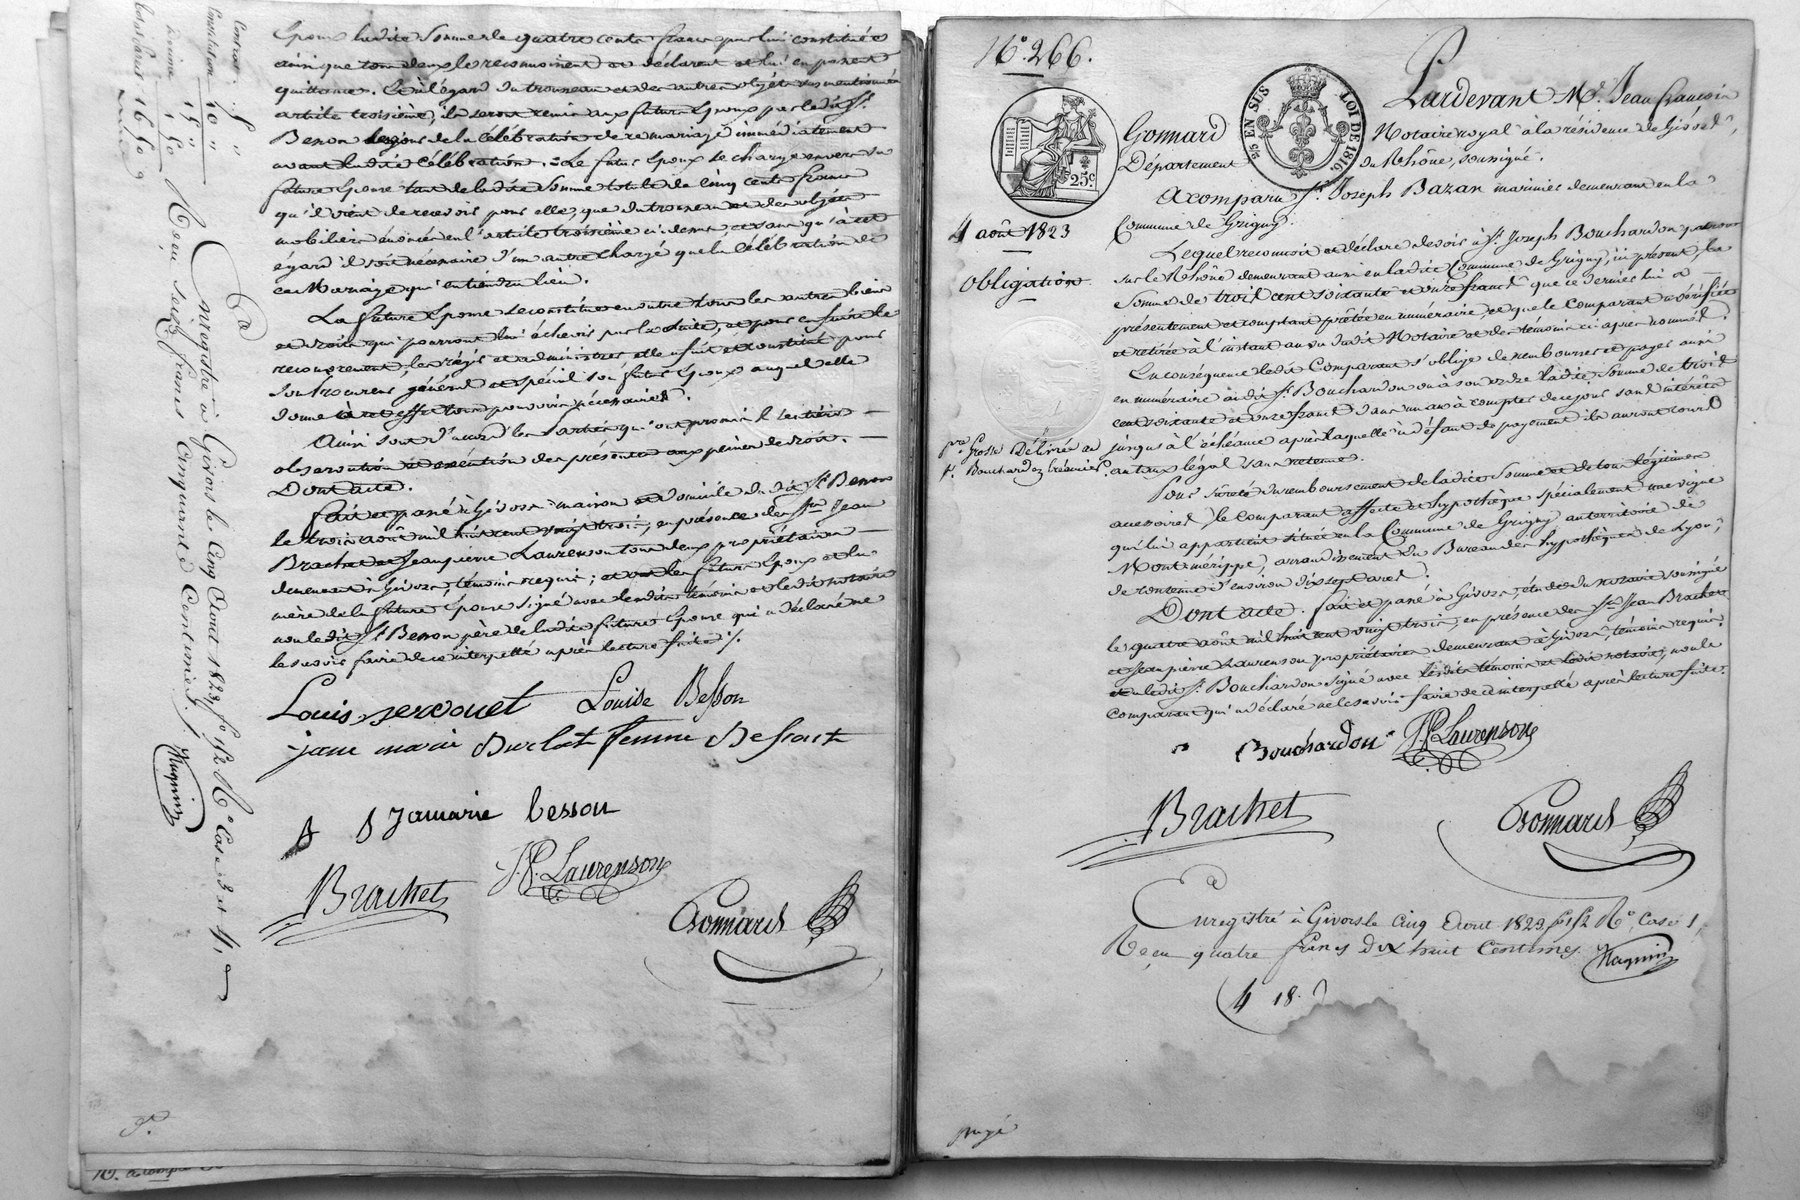 Epoux ladite somme de quatre cents francs par lui constituée
ainsi que tous deux le reconnoissent et déclarent et lui en passent
quittance. Et à l'égard du trousseau et des autres objets sus mentionnés
article troisième, ils seront remis aux futurs Epoux par ledit Sr.
Besson le jour de la célébration de ce mariage immédiatement
avant ladite célébration. Le futur Epoux se charge envers sa
future Epouse tant de ladite somme totale de cinq cents francs
qu'il vient de recevoir pour elle, que du trousseau et des objets
mobiliers énoncés en l'article troisième ci-dessus et sans qu'à cet
égard il soit nécessaire d'une autre charge que la célébration de
ce Mariage qui en tiendra lieu.
La future Epouse se constitue en outre tous les autres biens
et droits qui pourront lui échevoir par la suite, et pour en faire le
recouvrement, les régir et administrer elle a fait et constitué pour
son procureur général et spécial son futur Epoux auquel elle
donne à cet effet tous pouvoirs nécessaires.
Ainsi sont d'accord les parties qui ont promis l'entière
observation et exécution des présentes aux peines de droit.
Dont acte.
fait et passé à Givors maison et domicile dudit Sr. Besson
le trois août mil huit cent vingt trois, en présence des Srs. Jean
Brachet et Jean pierre Laurenson tous deux propriétaires
demeurant à Givors, témoins requis; et ont les futurs Epoux et la
mère de la future Epouse signé avec lesdits témoins et ledit notaire
non ledit Sr. Besson père de ladite future Epouse qui a déclaré ne
le savoir faire de ce interpellé après lecture faite.
Louis servouet Louise Besson
jane marie Burlat femme Besson
Jamarie besson
Brachet J.P. Laurenson
Gonnard
Contrat 5 "
Constitution 10 "
15 "
Décime 1 50
16 50
Enregistré à Givors le Cinq Aout 1823, fo 152 Ro Cases 3 et 4,
Reçu seize francs Cinquante Centimes
Naquin
No. 266.
25c
5/5 EN SUS
LOI DE 1816.
4 août 1823
Obligation
pre. Grosse Délivrée au
Sr. Bouchardon créancier
Pardevant Me. Jean françois
Gonnard Notaire royal à la résidence de Givors,
Département du Rhône, soussigné.
A comparu Sr. Joseph Bazan marinier demeurant en la
Commune de Grigny.
Lequel reconnoit et déclare devoir à Sr. Joseph Bouchardon
sur le Rhône demeurant aussi en ladite Commune de Grigny, ici présent, la
somme de trois cent soixante et onze francs que ce dernier lui a
présentement et comptant prêtée en numéraire, et que le comparant a vérifiée
et retirée à l'instant au vu dudit Notaire et des témoins ci après nommés;
En conséquence ledit Comparant s'oblige de rembourser et payer aussi
en numéraire audit Sr. Bouchardon ou à son ordre ladite somme de trois
cent soixante et onze francs dans un an à compter de ce jour sans intérêts
jusqu'à l'échéance après laquelle à défaut de payement ils auront cours
au taux légal sans retenue.
Pour sûreté du remboursement de ladite somme et de tous légitimes
accessoires, le comparant affecte et hypothèque spécialement une vigne
qui lui appartient située en la Commune de Grigny au territoire de
Montmérippe, arrondissement du Bureau des hypothèques de Lyon,
de contenue d'environ dix sept ares.
Dont acte. fait et passé à Givors étude du notaire soussigné
le quatre août mil huit cent vingt trois, en présence des Srs. Jean Brachet
et Jean pierre Laurenson propriétaires demeurant à Givors, témoins requis,
et a ledit Sr. Bouchardon signé avec lesdits témoins et ledit notaire, non le
comparant qui a déclaré ne le savoir faire de ce interpellé après lecture faite.
Bouchardon J.P. Laurenson
Brachet Gonnard
Enregistré à Givors le Cinq Aout 1823 fo 152 Ro. Case 1,
Reçu quatre francs Dix huit Centimes. Naquin
4 18.